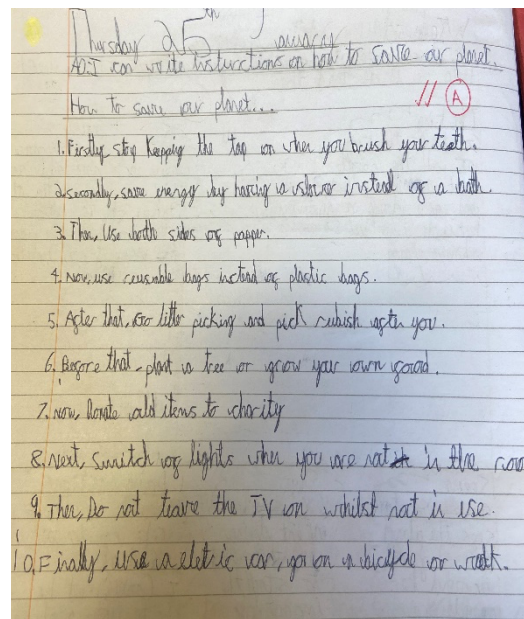 Thursday 25th January
AO: I can write instructions on how to save our planet.
How to save our planet...
// A
1. Firstly, stop Kepping the tap on when you brush your teeth.
2. secondly, save energy by having a shower instead of a bath.
3. Then, Use both sides of papper.
4. Now, use reusable bags instead of plastic bags.
5. After that, Go litter picking and pick rubish after you.
6. Before that, plant a tree or grow your own food.
7. Now, Donate old items to charity
8. Next, switch of lights when you are not in the roo
9. Then, Do not leave the TV on whilst not in use.
10. Finally, use a eletric car, go on a bicycle or walk.